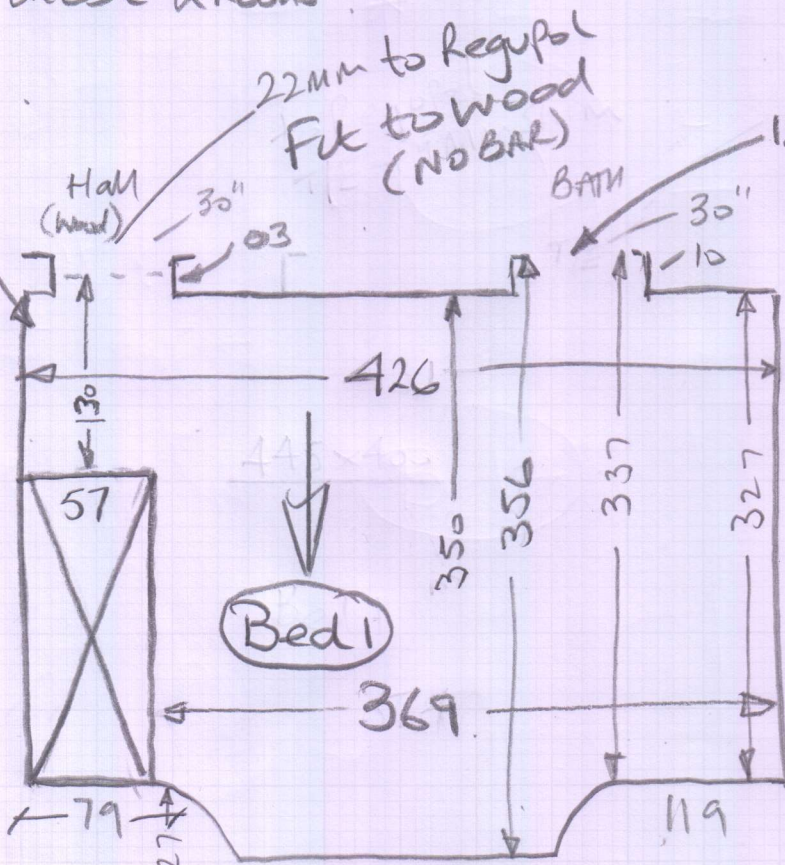 22mm to Regupol
Fit to wood
(NO BAR)
Hall
(Wood)
30"
03
BATH
30"
10
426
130
57
350
356
337
327
Bed 1
369
79
27
119